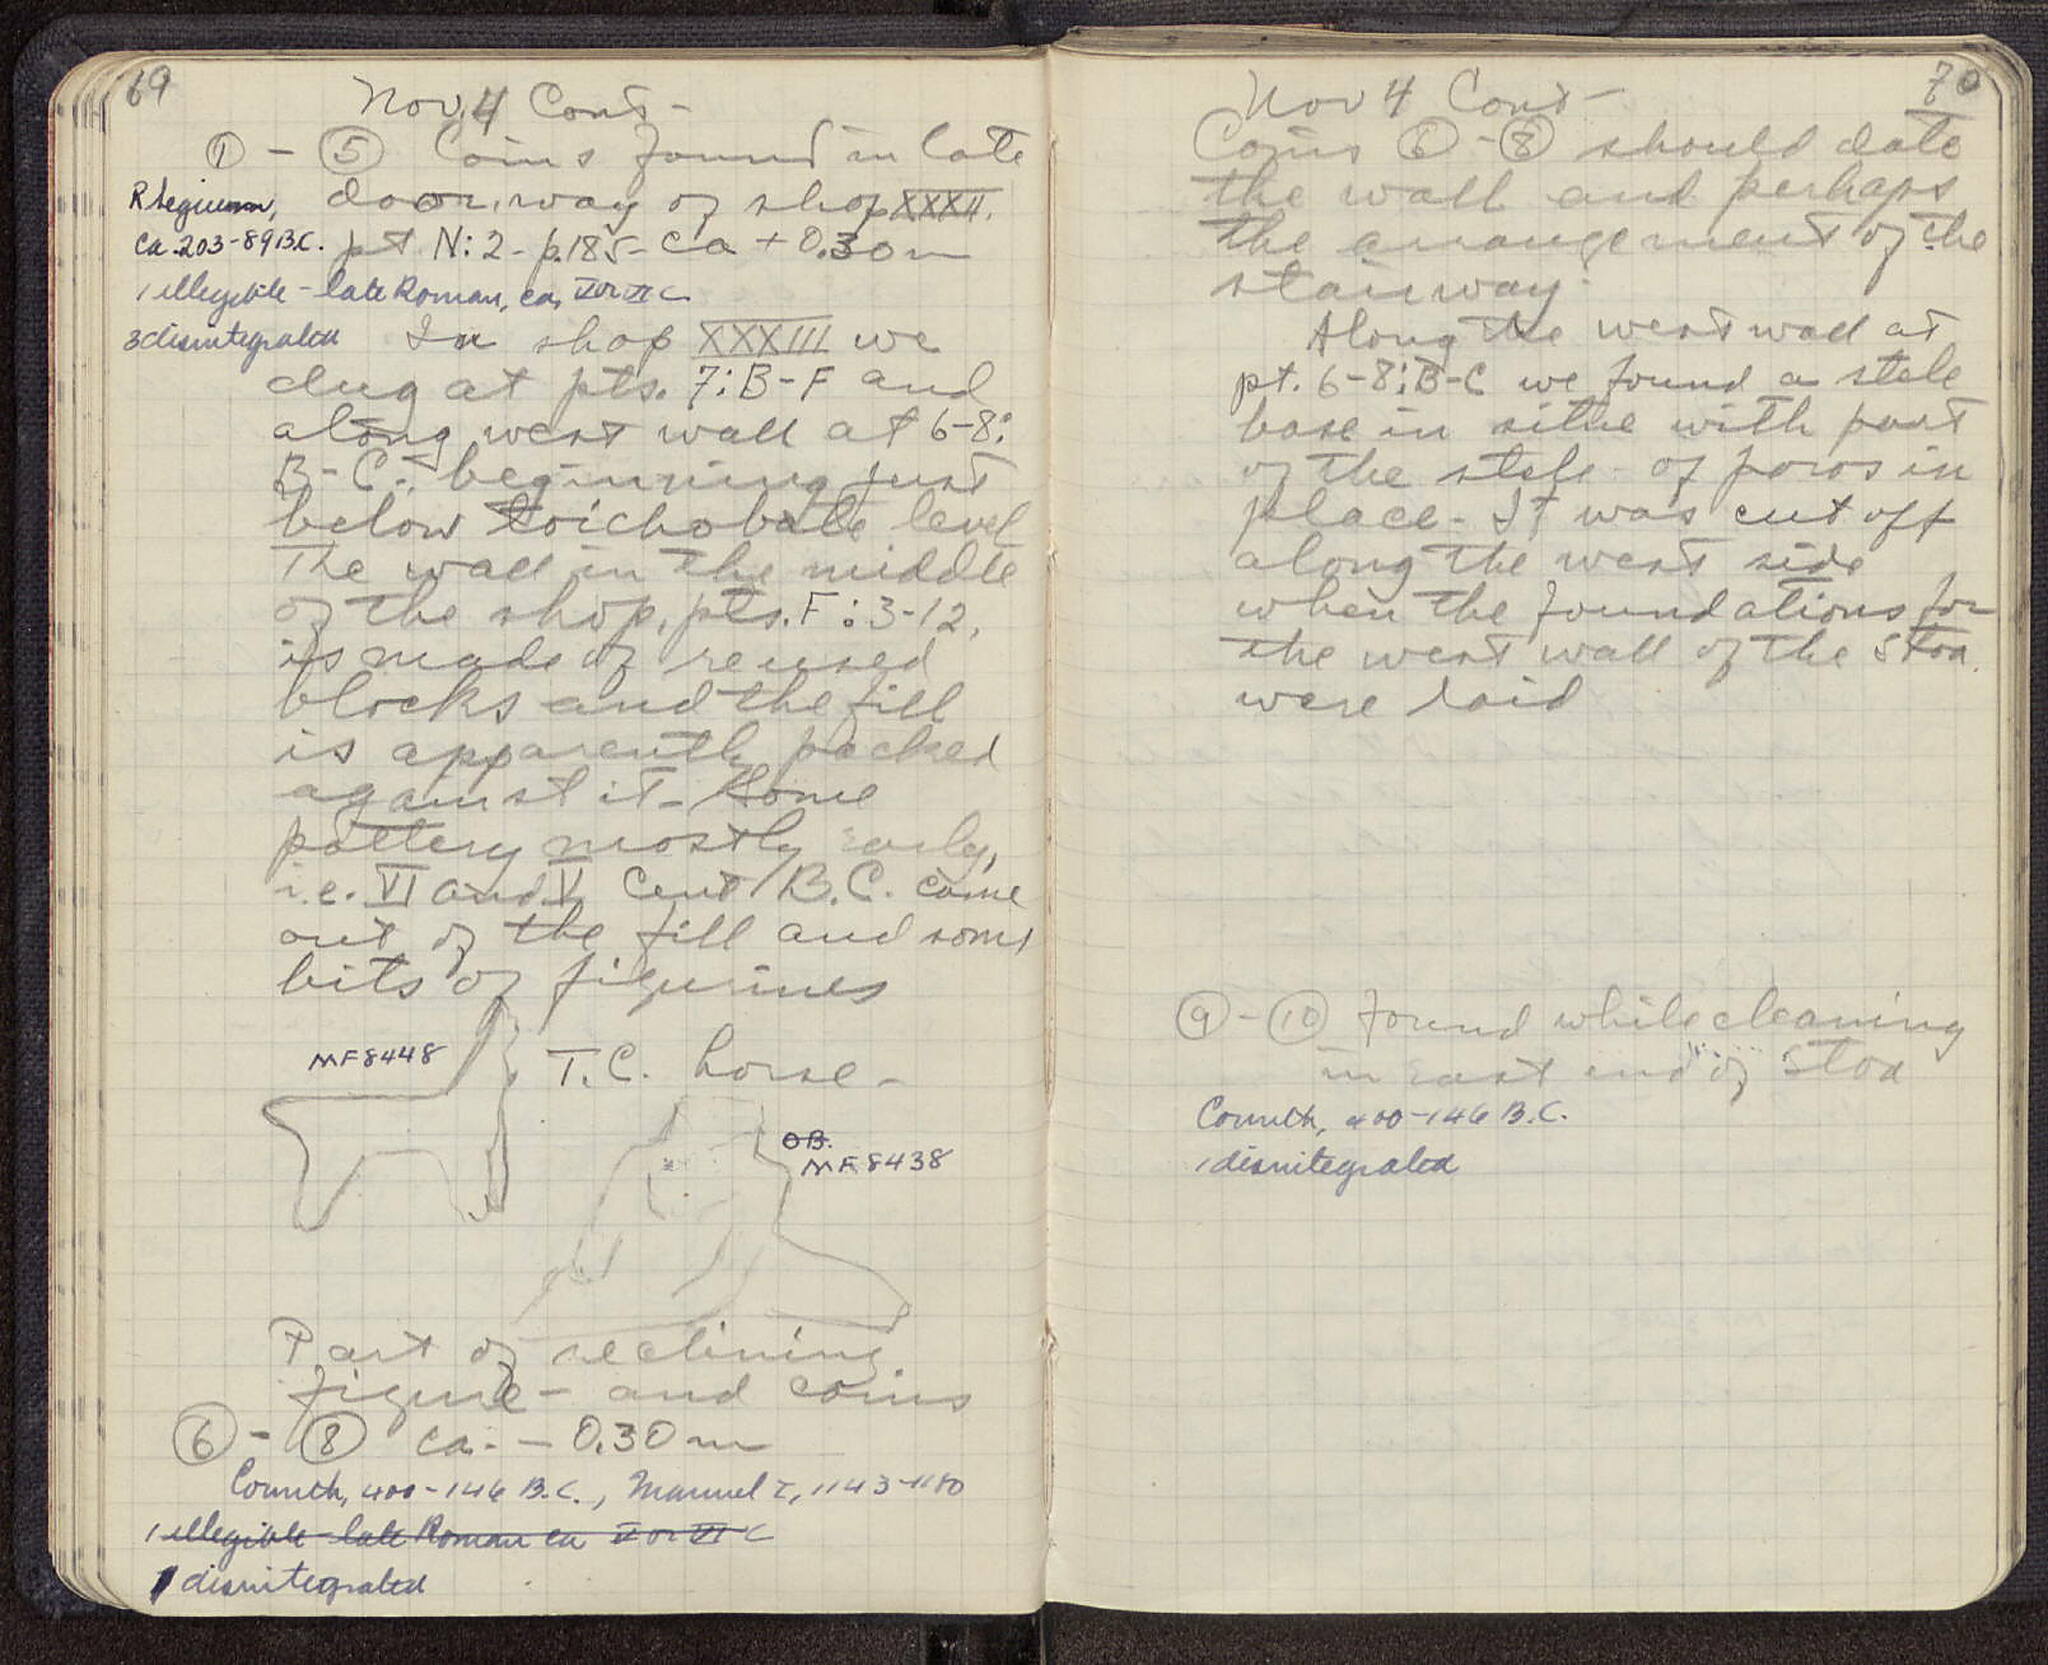 69
Nov. 4 Cont-
① - ⑤ Coins found in late
Rhegium, doorway of shop XXXII.
ca. 203-89 B.C. pt N:2 - p.185 - ca + 0.30 m
1 illegible - late Roman, ca, V or VI C
3 disintegrated In shop XXXIII we
dug at pts. 7:B-F and
along west wall at 6-8:
B-C - beginning just
below toichobate level
The wall in the middle
of the shop, pts. F:3-12,
is made of reused
blocks and the fill
is apparently packed
against it - Some
pottery mostly early,
i.e. VI and V Cent B.C. came
out of the fill and some
bits of figurines
MF 8448 T.C. horse -
OB.
MF 8438
Part of reclining
figure - and coins
⑥ - ⑧ ca. - 0.30 m
Corinth, 400-146 B.C., Manuel I, 1143-1180
1 illegible - late Roman ca V or VI C
1 disintegrated
70
Nov 4 Cont -
Coins ⑥ - ⑧ should date
the wall and perhaps
the arrangement of the
stairway.
Along the west wall at
pt. 6-8:B-C we found a stele
base in sithe with part
of the stele - of poros in
place - It was cut off
along the west side
when the foundations for
the west wall of the Stoa
were laid
⑨ - ⑩ found while cleaning
in east end of Stoa
Corinth, 400-146 B.C.
1 disintegrated